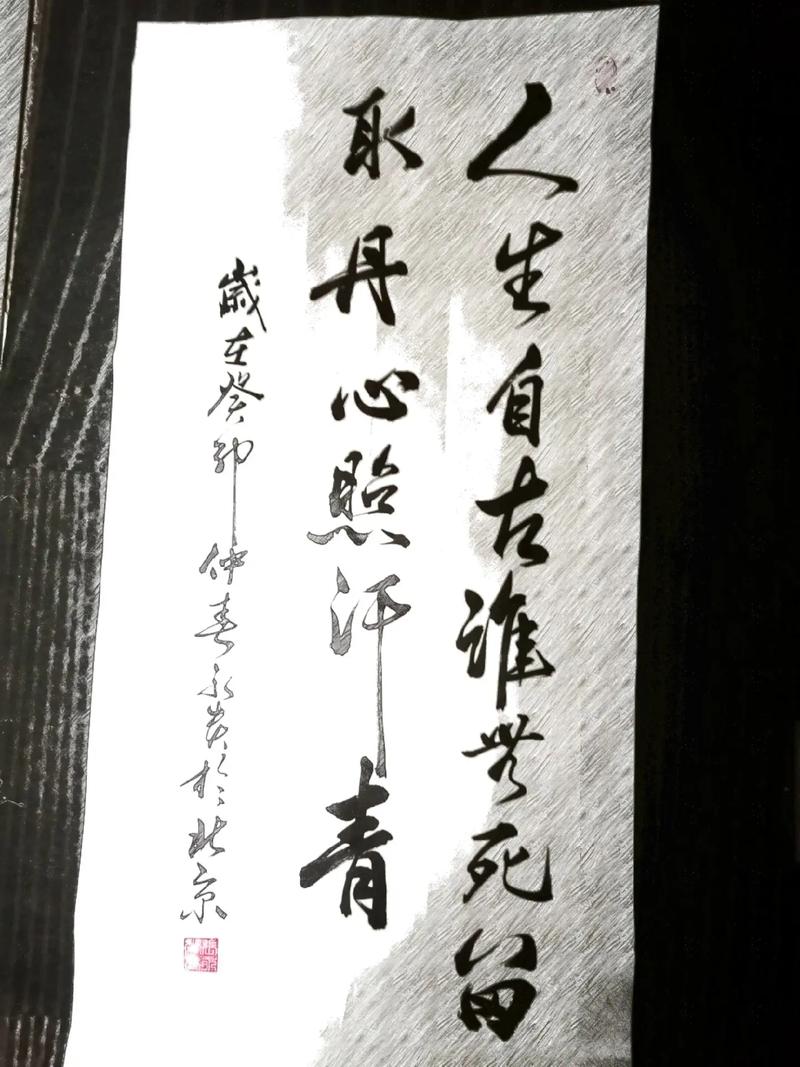 人生自古誰無死留
取丹心照汗青
歲在癸卯仲春永於北京